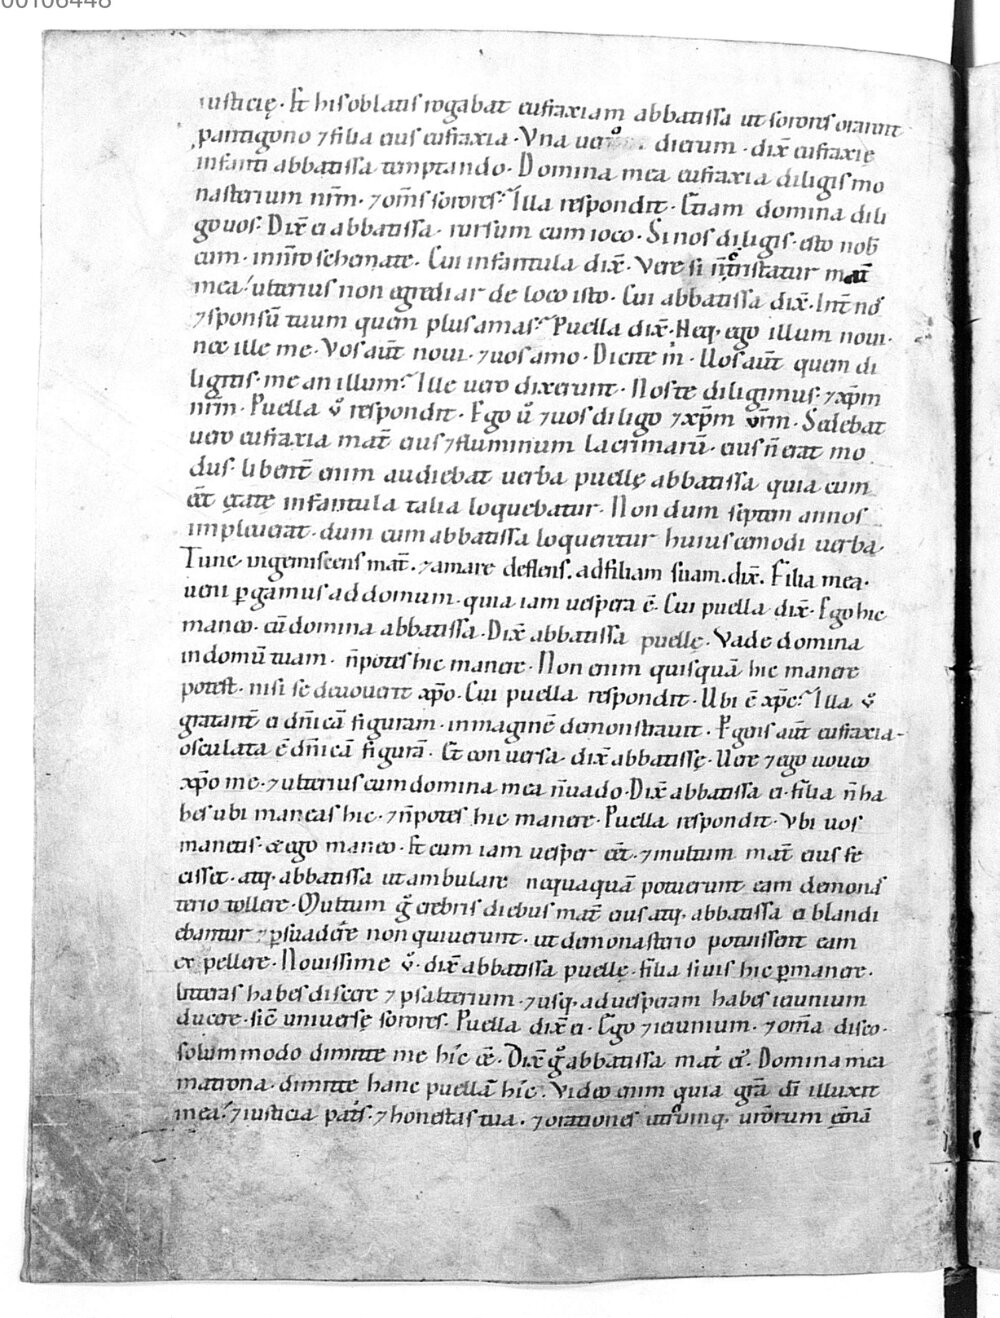 00106448
iusticię · Et his oblatis rogabat eufraxiam abbatissa ut sorores orarent
p antigono ⁊ filia eius eufraxia · Vna uero dierum · dix̄ eufraxię
infanti abbatissa temptando · Domina mea eufraxia diligis mo
nasterium nr̄m · ⁊ om̄s sorores? Illa respondit · Etiam domina dili
go uos · Dix̄ ei abbatissa · rursum cum ioco · Si nos diligis · esto nob̄
cum · in nr̄o schemate · Cui infantula dix̄ · Vere si n̄ tristatur mat̄
mea / ulterius non egrediar de loco isto · Cui abbatissa dix̄ · Int̄ nos
⁊ sponsū tuum quem plus amas? Puella dix̄ · Neq; ego illum noui ·
nec ille me · Vos aut̄ noui · ⁊ uos amo · Dicite m̄ · Uos aut̄ quem di
ligitis · me an illum? Ille uero dixerunt · Nos te diligimus · ⁊ xp̄m
nr̄m · Puella v̊ respondit · Ego ů ⁊ uos diligo ⁊ xp̄m vr̄m · Sedebat
uero eufraxia mat̄ eius ⁊ fluminum lacrimarū · eius n̄ erat mo
dus · libent̄ enim audiebat uerba puellę abbatissa quia cum
ēēt ętate infantula talia loquebatur · Non dum septem annos
impleuerat · dum cum abbatissa loqueretur huiuscemodi uerba ·
Tunc ingemiscens mat̄ · ⁊ amare deflens · ad filiam suam · dix̄ · Filia mea ·
ueni pgamus ad domum · quia iam uespera ē · Cui puella dix̄ · Ego hic
maneo · cū domina abbatissa · Dix̄ abbatissa puellę · Vade domina
in domū tuam · n̄ potes hic manere · Non enim quisquā hic manere
potest · nisi se deuouerit xp̄o · Cui puella respondit · Ubi ē xp̄c? Illa v̊
gratant̄ ei dn̄icā figuram · in imaginē demonstrauit · Pgens aut̄ eufraxia ·
osculata ē dn̄icā figurā · Et conuersa · dix̄ abbatissę · Uere ⁊ ego uoueo
xp̄o me · ⁊ ulterius cum domina mea n̄ uado · Dix̄ abbatissa ei · filia n̄ ha
bes ubi maneas hic · ⁊ n̄ potes hic manere · Puella respondit · Vbi uos
manetis · & ego maneo · Et cum iam uesper ēēt · ⁊ multum mat̄ eius fe
cisset · atq; abbatissa ut ambulare nequaquā potuerunt eam de monas
terio tollere · Multum g̊ crebris diebus mat̄ eius atq; abbatissa ei blandi
ebantur ⁊ psuadēre non quiuerunt · ut de monasterio potuissent eam
expellere · Nouissime v̊ · dix̄ abbatissa puellę · filia si uis hic pmanere ·
litteras habes discere ⁊ psalterium · ⁊ usq; ad uesperam habes ieiunium
ducere · sic̄ uniuersę sorores · Puella dix̄ ei · Ego ⁊ ieiunium · ⁊ om̄a disco ·
solummodo dimitte me hic ēē · Dix̄ g̊ abbatissa mat̄ ei' · Domina mea
matrona · dimitte hanc puellā hic · Video enim quia gr̄a dī illuxit
mea / ⁊ iusticia pat̄s · ⁊ honestas tua · ⁊ orationes utrorumq;